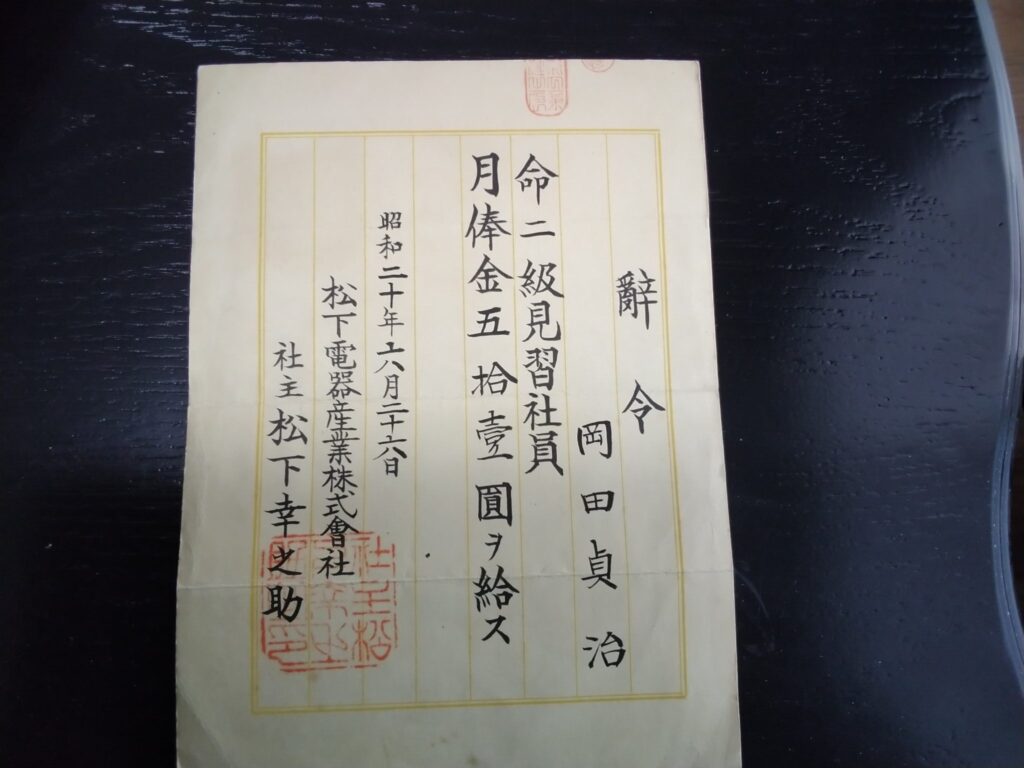 辭令
岡田貞治
命二級見習社員
月俸金五拾壹圓ヲ給ス
昭和二十年六月二十六日
松下電器産業株式會社
社主 松下幸之助
社主松下幸之助印